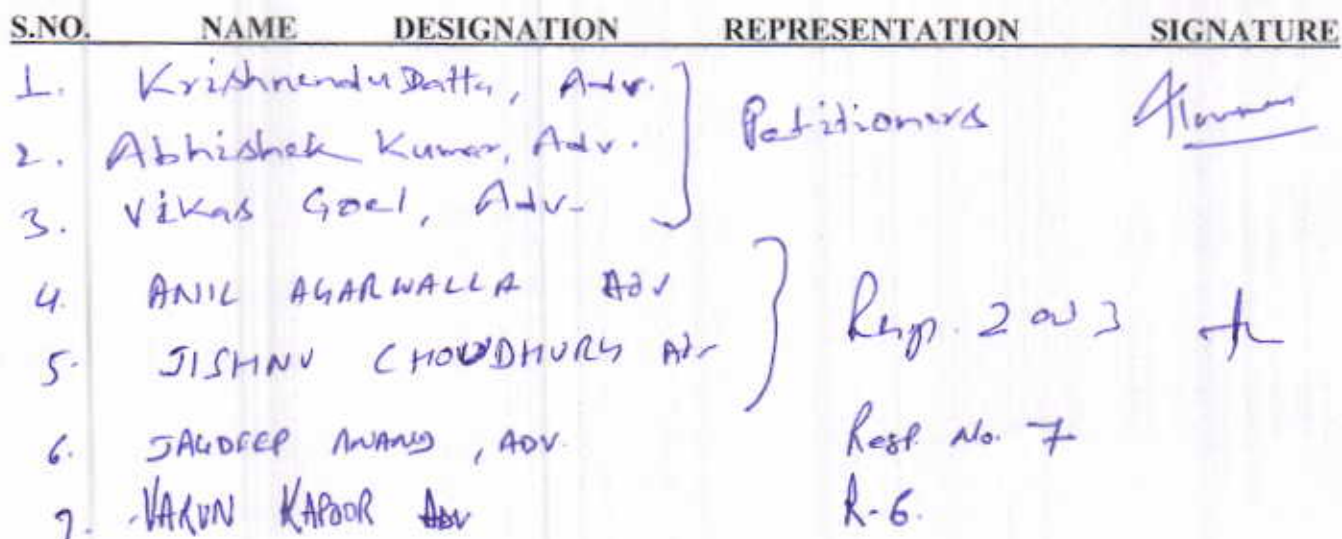 S.NO. NAME DESIGNATION REPRESENTATION SIGNATURE
1. Krishnendu Datta, Adv.
2. Abhishek Kumar, Adv. Petitioners
3. Vikas Goel, Adv.
4. ANIL AGARWALLA ADV
5. JISHNU CHOWDHURY Adv Resp. 2 and 3
6. JAGDEEP ANAND, ADV. Resp. No. 7
7. VARUN KAPOOR Adv R-6.